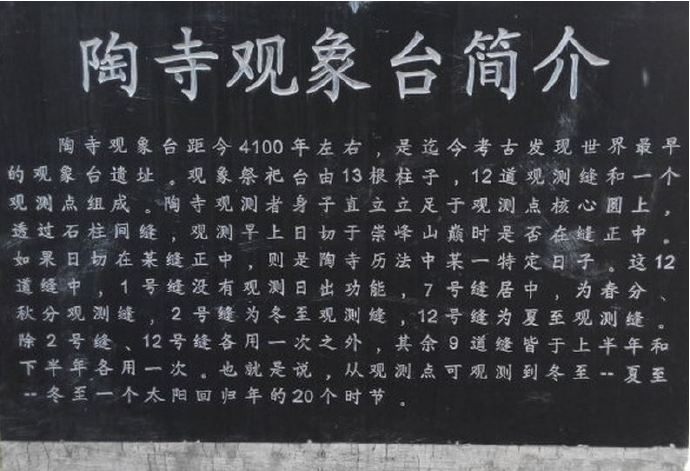 陶寺观象台简介
陶寺观象台距今4100年左右，是迄今考古发现世界最早
的观象台遗址。观象祭祀台由13根柱子，12道观测缝和一个
观测点组成。陶寺观测者身子直立立足于观测点核心圆上，
透过石柱间缝，观测早上日切于崇峰山巅时是否在缝正中。
如果日切在某缝正中，则是陶寺历法中某一特定日子。这12
道缝中，1号缝没有观测日出功能，7号缝居中，为春分、
秋分观测缝，2号缝为冬至观测缝，12号缝为夏至观测缝。
除2号缝、12号缝各用一次之外，其余9道缝皆于上半年和
下半年各用一次。也就是说，从观测点可观测到冬至--夏至
--冬至一个太阳回归年的20个时节。